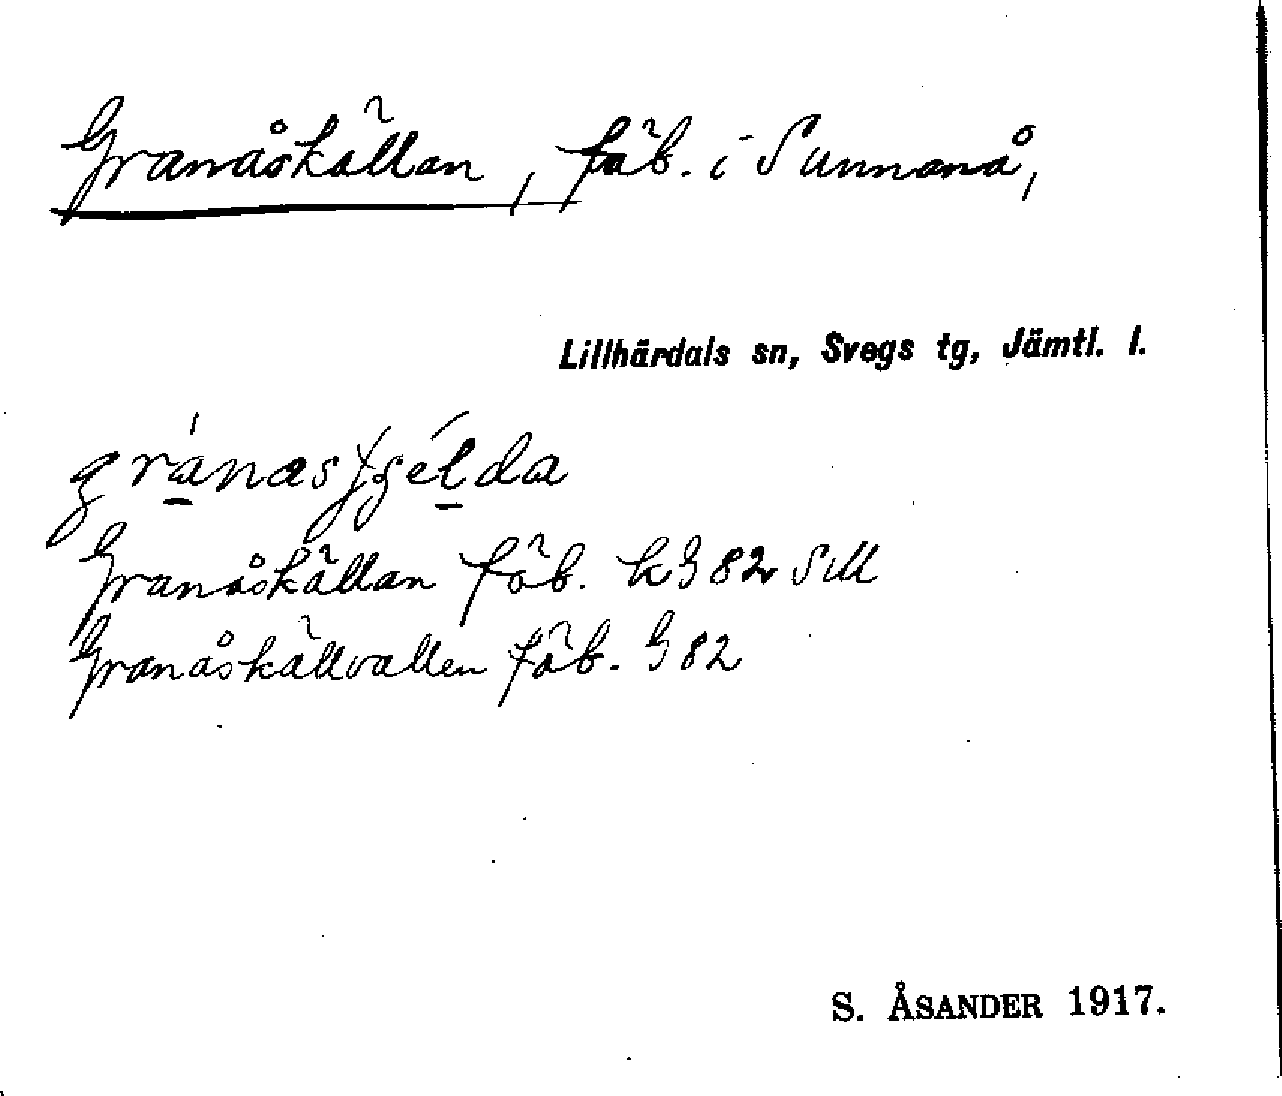 Granåskällan, fäb. i Sunnanå,
Lillhärdals sn, Svegs tg, Jämtl. l.
Granåskällan fäb. k G 82 Sill
Granåskällvallen fäb. G 82
S. ÅSANDER 1917.